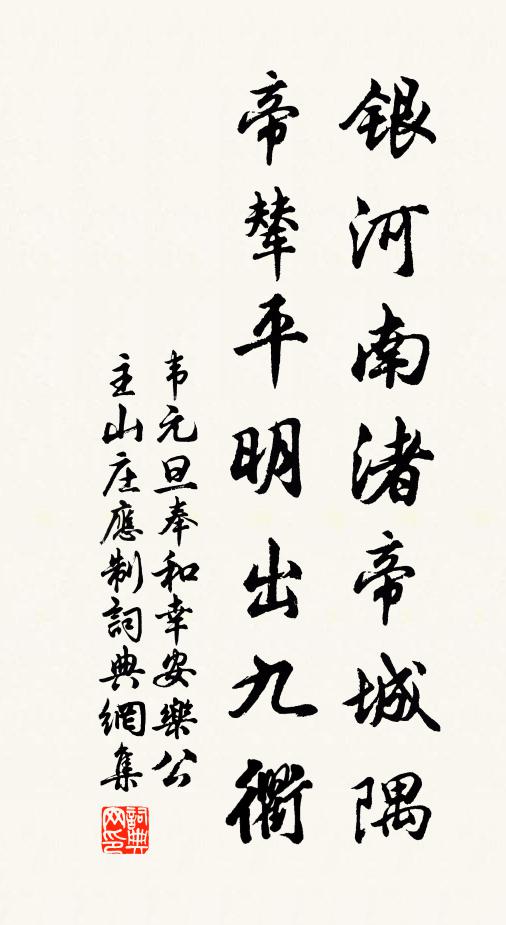 銀河南渚帝城隅
帝輦平明出九衢
韦元旦奉和幸安樂公
主山庄應制詞典網集
詞典
网印